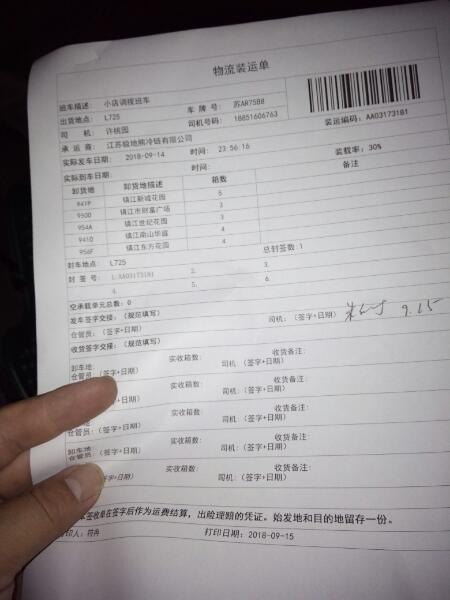 物流装运单
班车描述: 小店调拨班车
出货地点: L725 车 牌 号: 苏AR75B8
司 机: 许桃园 司机号码: 18851606763
承 运 商: 江苏极地熊冷链有限公司 装运编码: AA03173181
实际发车日期: 2018-09-14 时间: 23:56:16
实际到车日期: 时间: 装载率: 30%
卸货地 卸货地描述 箱数 备注
941P 镇江新城花园 5
950D 镇江市财富广场 3
954A 镇江世纪花园 3
941D 镇江南山华庭 4
956F 镇江东方花园 4
封车地点: L725 总封签数: 1
封 签 号: 1.AA03173181 2. 3.
4. 5. 6.
空承载单元总数: 0
发车签字交接: (规范填写)
仓管员: (签字+日期) 司机: (签字+日期) 9.15
收货签字交接: (规范填写)
卸车地: 实收箱数: 收货备注:
仓管员: (签字+日期) 司机: (签字+日期)
实收箱数: 收货备注:
(签字+日期) 司机: (签字+日期)
卸车地: 实收箱数: 收货备注:
仓管员: (签字+日期) 司机: (签字+日期)
卸车地: 实收箱数: 收货备注:
仓管员: (签字+日期) 司机: (签字+日期)
实收箱数: 收货备注:
(签字+日期) 司机: (签字+日期)
签收单在签字后作为运费结算，出险理赔的凭证。始发地和目的地留存一份。
打印人: 符冉 打印日期: 2018-09-15